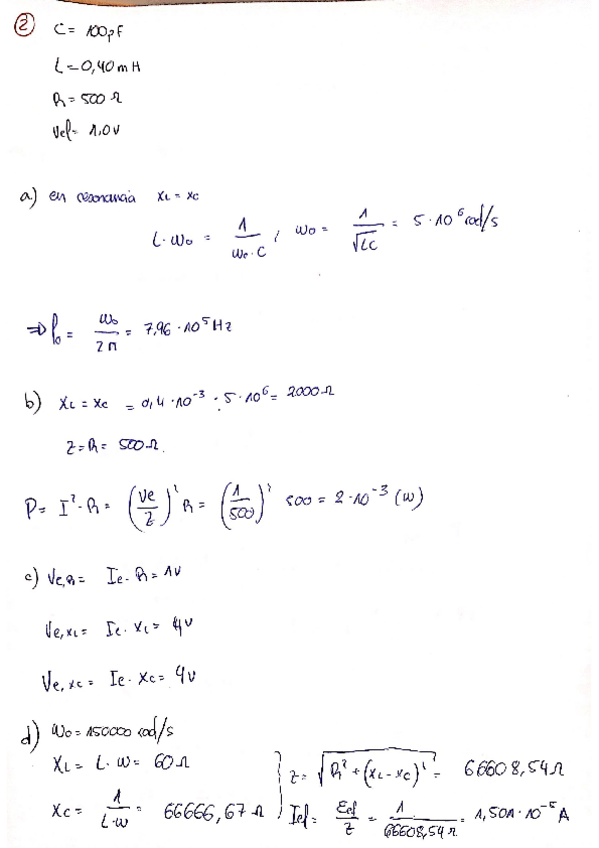 ② C = 100pF
L = 0,40 mH
R = 500 Ω
Vef = 1,0 V
a) en resonancia XL = XC
L·ω₀ = 1/(ω₀·C) ; ω₀ = 1/√LC = 5·10⁶ rad/s
⇒ f₀ = ω₀/2π = 7,96·10⁵ Hz
b) XL = XC = 0,4·10⁻³·5·10⁶ = 2000 Ω
Z = R = 500 Ω.
P = I²·R = (Ve/Z)² R = (1/500)² 500 = 2·10⁻³ (W)
c) Ve,R = Ie·R = 1V
Ve,XL = Ie·XL = 4V
Ve,XC = Ie·XC = 4V
d) ω₀ = 150000 rad/s
XL = L·ω = 60 Ω
XC = 1/(L·ω) = 66666,67 Ω
Z = √(R² + (XL - XC)²) = 66608,54 Ω
Ief = Eef/Z = 1/66608,54 Ω = 1,501·10⁻⁵ A